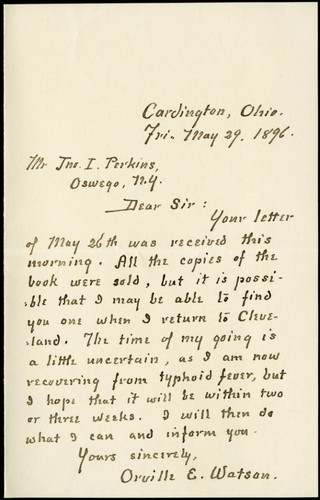 Cardington, Ohio.
Fri. May 29. 1896.
Mr Jno. I. Perkins,
Oswego, N.Y.
Dear Sir:
Your letter
of May 26th was received this
morning. All the copies of the
book were sold, but it is possi-
ble that I may be able to find
you one when I return to Cleve-
land. The time of my going is
a little uncertain, as I am now
recovering from typhoid fever, but
I hope that it will be within two
or three weeks. I will then do
what I can and inform you.
Yours sincerely,
Orville E. Watson.